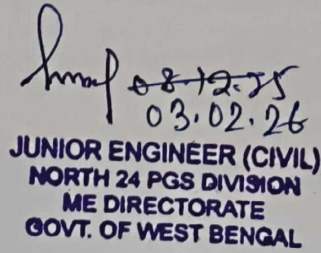 08.12.25
03.02.26
JUNIOR ENGINEER (CIVIL)
NORTH 24 PGS DIVISION
ME DIRECTORATE
GOVT. OF WEST BENGAL